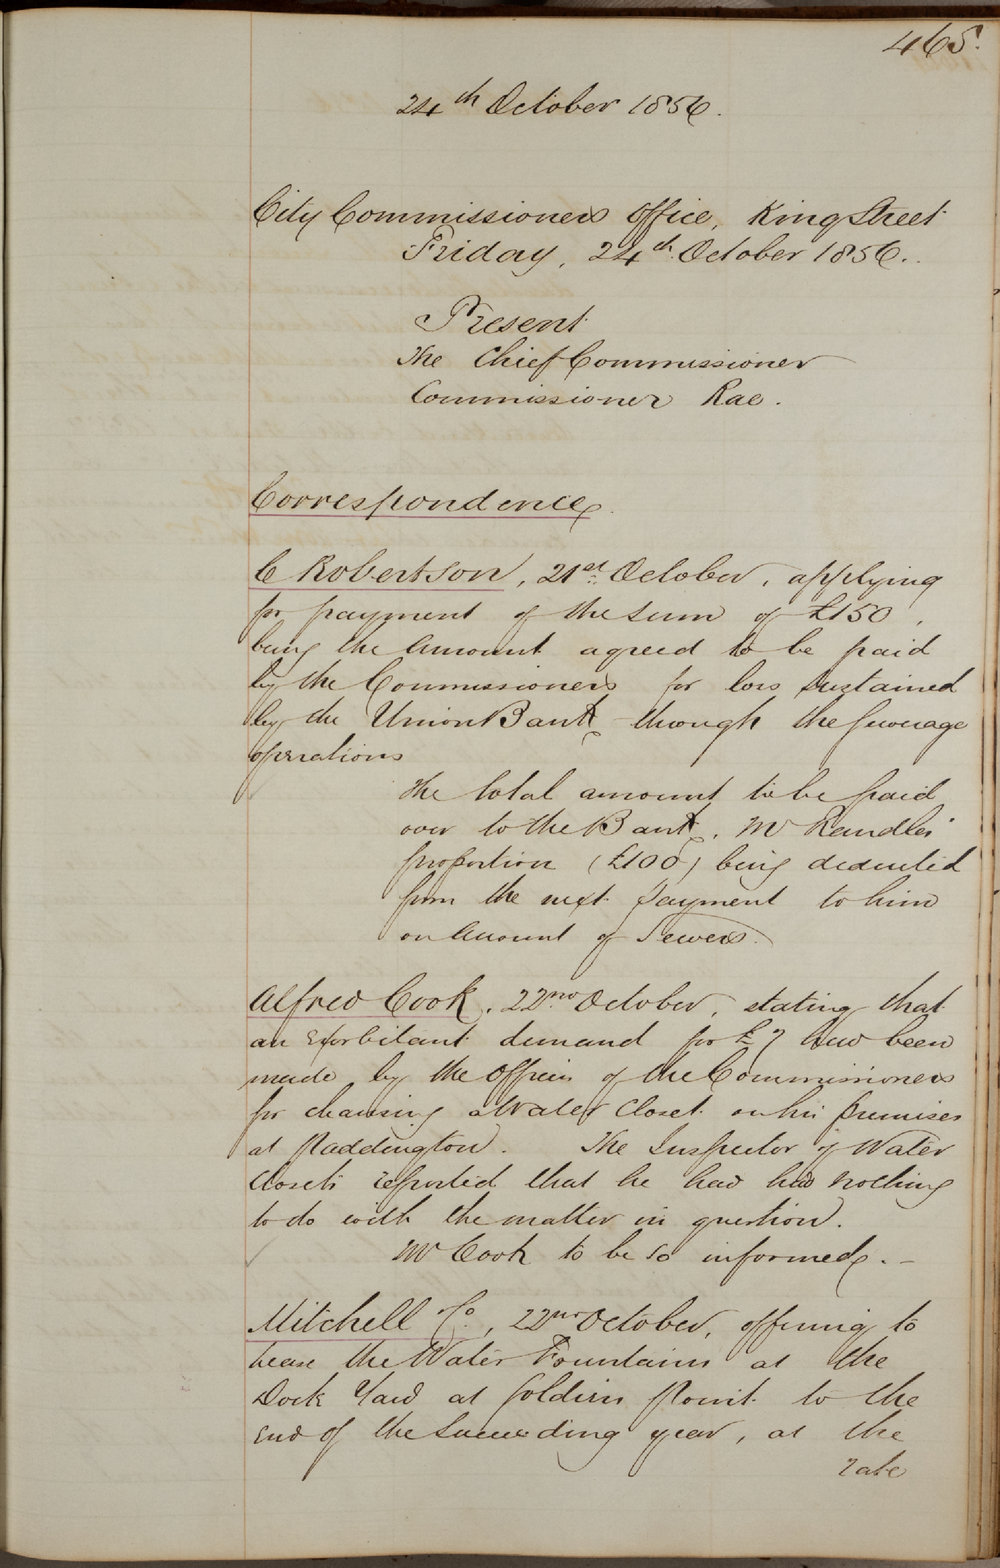 465.
24th October 1856.
City Commissioners Office, King Street
Friday, 24th October 1856.
Present
The Chief Commissioner
Commissioner Rae.
Correspondence
C Robertson, 21st October, applying
for payment of the sum of £150,
being the amount agreed to be paid
by the Commissioners for loss sustained
by the Union Bank through the sewerage
operations
The total amount to be paid
over to the Bank, Mr Randles'
proportion (£100) being deducted
from the next payment to him
on account of Sewers.
Alfred Cook, 22nd October, stating that
an exorbitant demand for £7 had been
made by the Officer of the Commissioners
for cleansing a Water Closet on his premises
at Paddington. The Inspector of Water
Closets reported that he had had nothing
to do with the matter in question.
Mr Cook to be so informed. –
Mitchell & Co., 22nd October, offering to
lease the Water Fountains at the
Dock Yard at Soldiers Point to the
end of the succeeding year, at the
rate